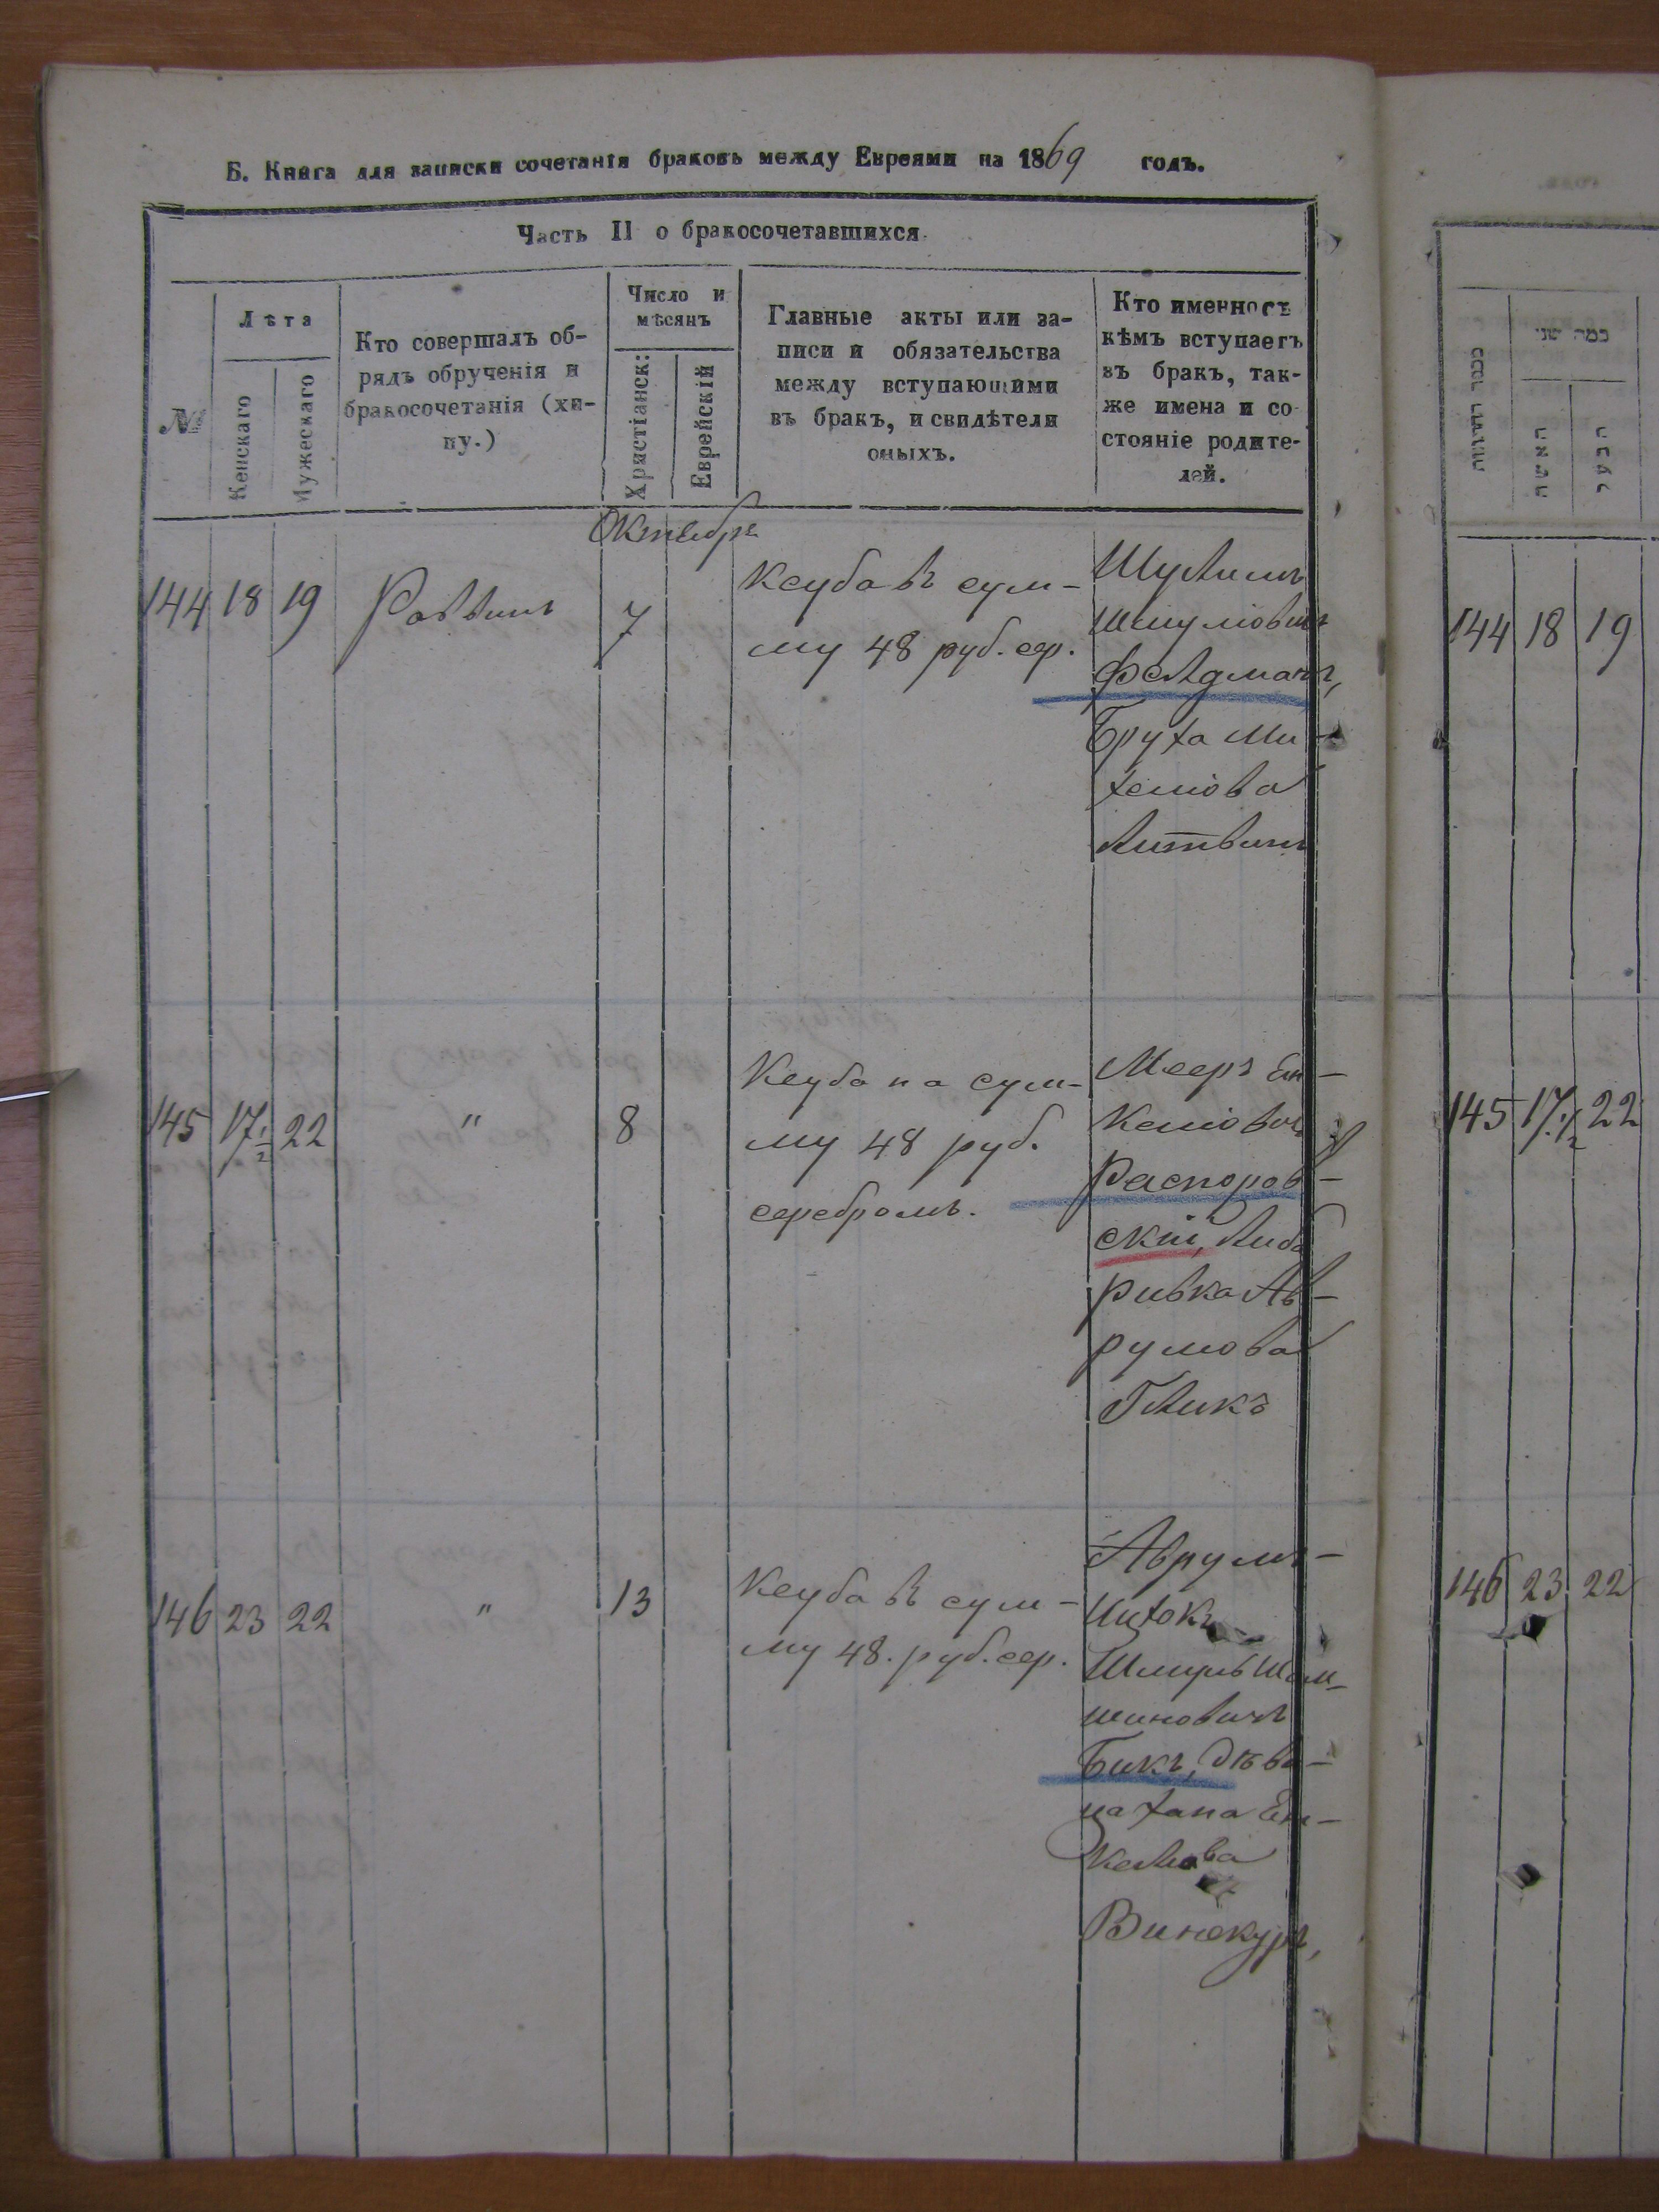 Б. Книга для записки сочетанія браковъ между Евреями на 1869 годъ.
Часть II о бракосочетавшихся.
№
Лѣта
Женскаго
Мужескаго
Кто совершалъ об-
рядъ обрученія и
бракосочетанія (хи-
пу.)
Число и
мѣсяцъ
Христіанск:
Еврейскій
Главные акты или за-
писи и обязательства
между вступающими
въ бракъ, и свидѣтели
оныхъ.
Кто именно съ
кѣмъ вступаетъ
въ бракъ, так-
же имена и со-
стояніе родите-
лей.
Октября
144 18 19 Раввинъ 7
Ксуба въ сум-
му 48 руб. сер.
Шулимъ
Шмулiовичъ
Фелдманъ,
Бруха Ми-
хелiова
Литвинъ
145 17 1/2 22 " 8
Ксуба на сум-
му 48 руб.
серебромъ.
Мееръ Ен-
келiовичъ
Распоров-
скiй, Либа
Ривка Ав-
румова
Гликъ
146 23 22 " 13
Ксуба въ сум-
му 48. руб. сер.
Аврумъ-
Ицхокъ
Шмуль Шам-
шиновичъ
Бикъ, дѣви-
ца Хана Ен-
келова
Винокуръ,
כמה שני
האשה
הבעל
144 18 19
145 17 1/2 22
146 23 22